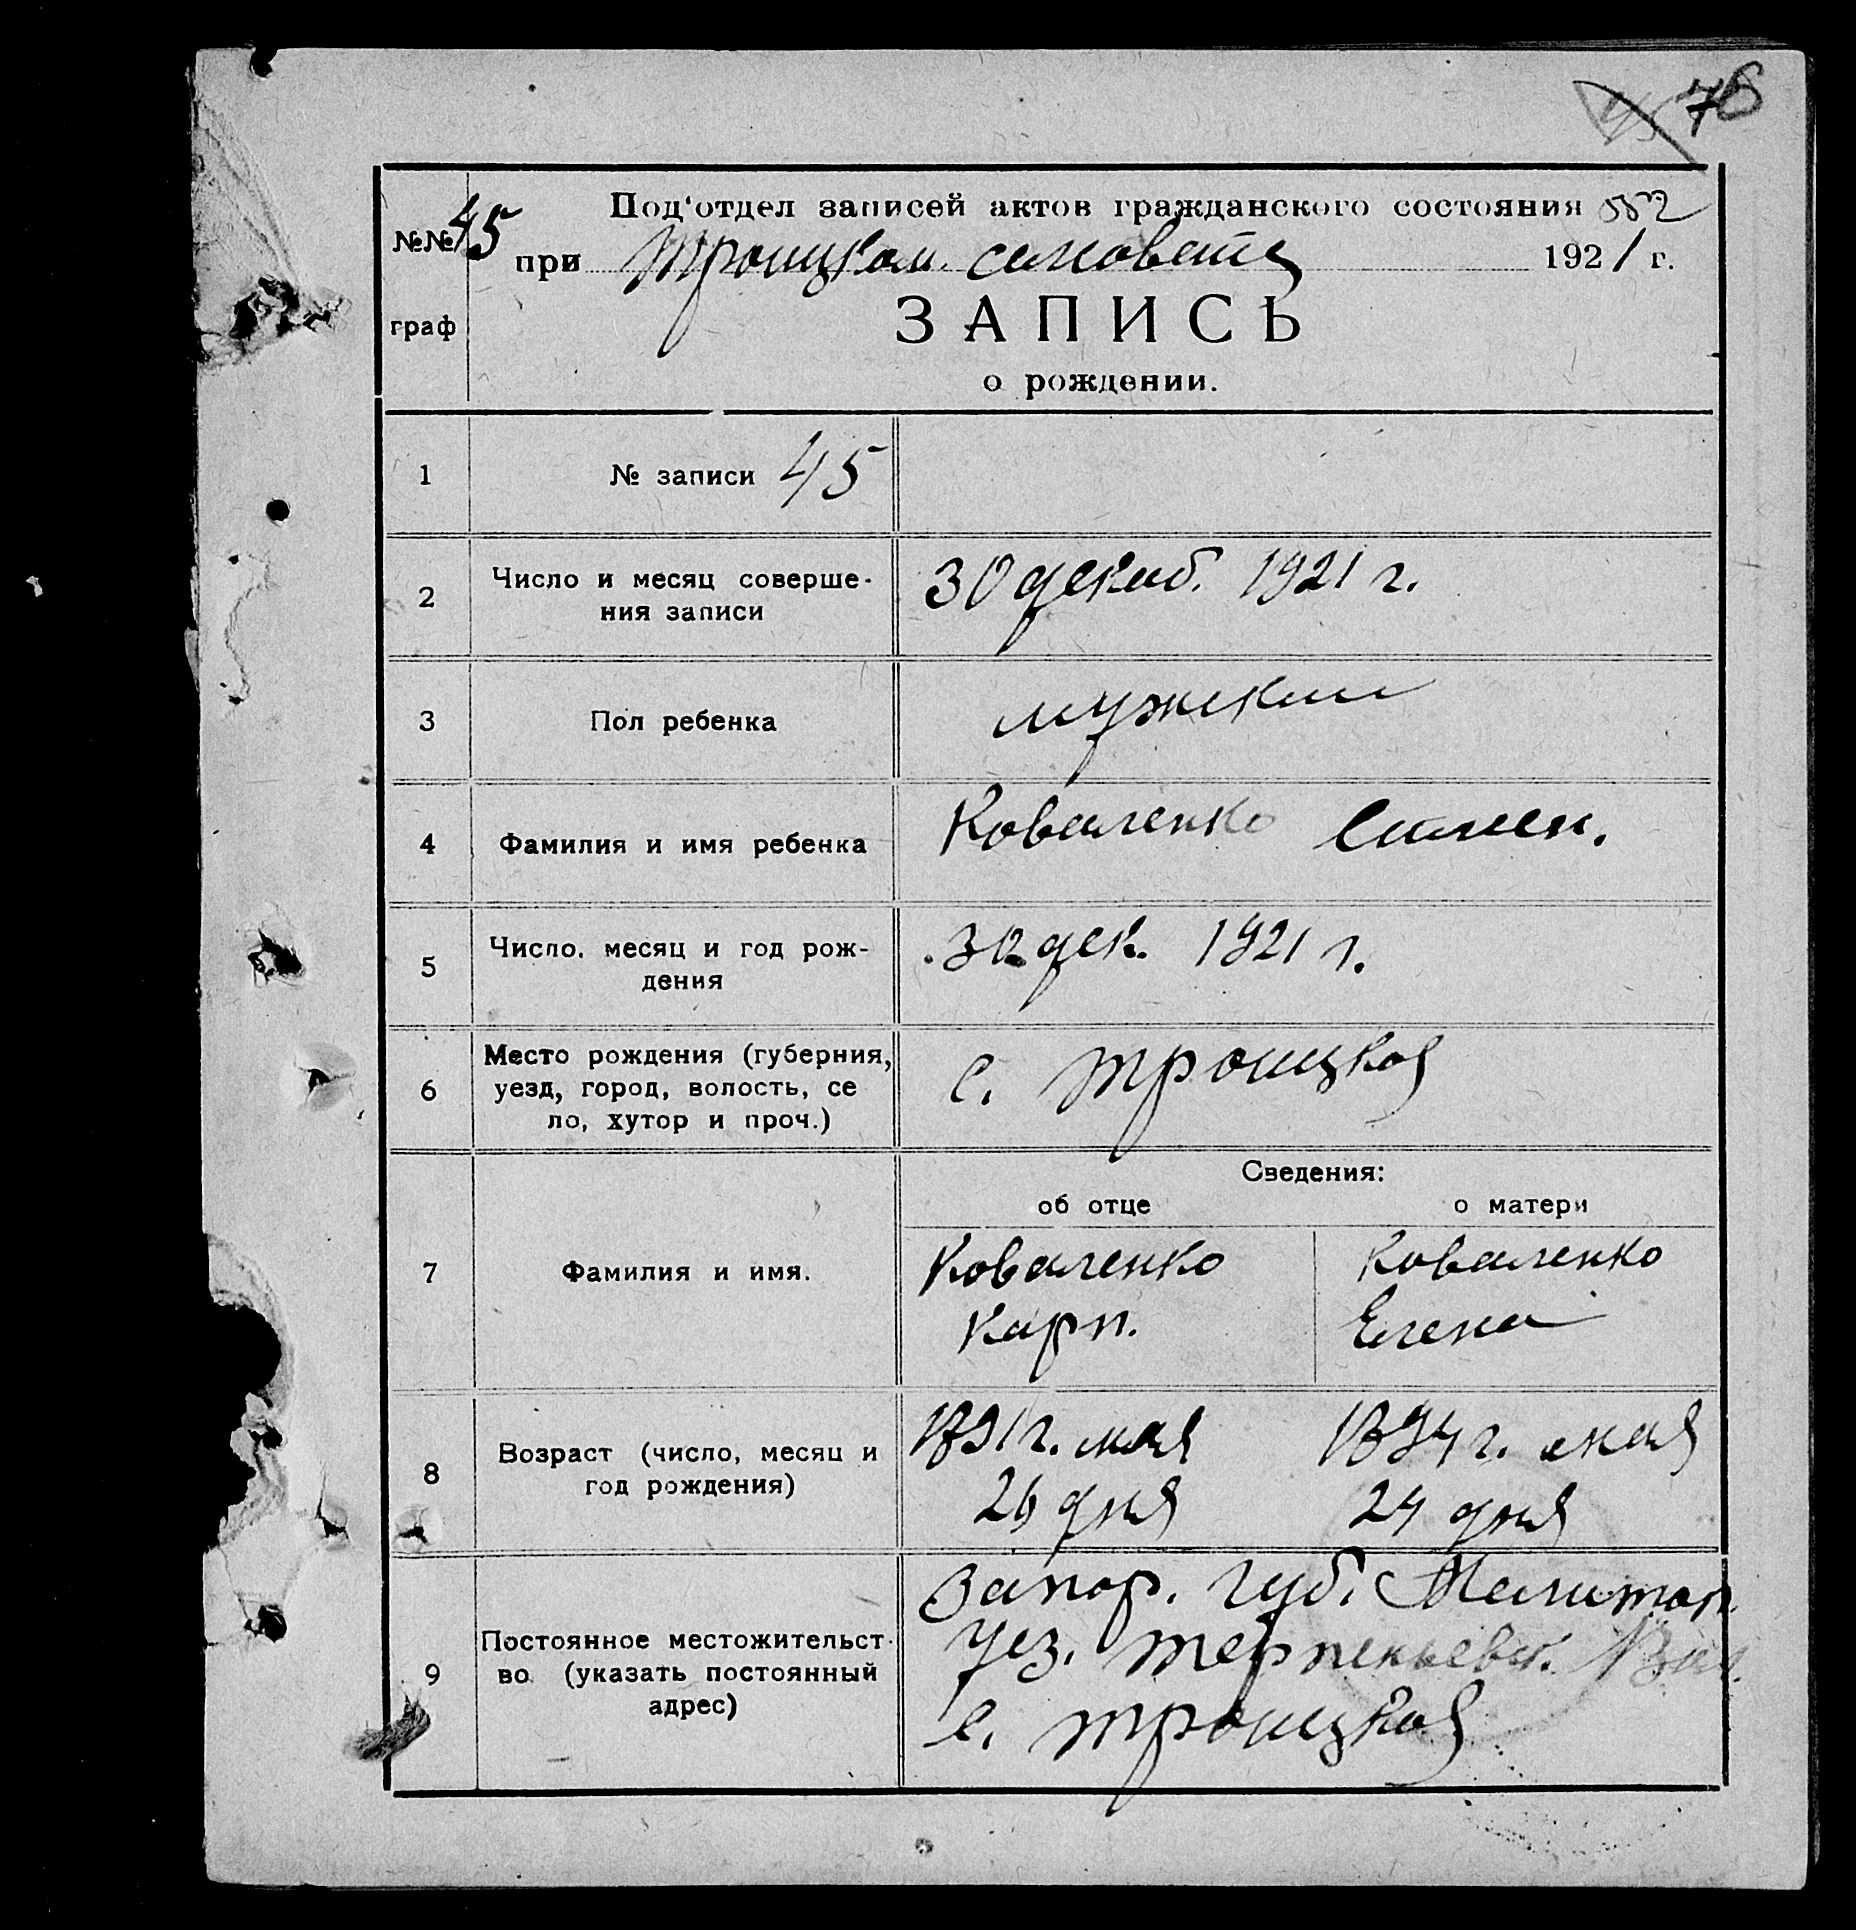 76
Под'отдел записей актов гражданского состояния
№№ 45 при Троицком 1921 г.
граф
ЗАПИСЬ
о рождении.
1 № записи 45
2 Число и месяц соверше-
ния записи
30 декаб. 1921 г.
3 Пол ребенка мужскии
4 Фамилия и имя ребенка Коваленко Симен.
5 Число, месяц и год рож-
дения
30 дек. 1921 г.
6 Место рождения (губерния,
уезд, город, волость, се
ло, хутор и проч.)
с. Троицкоя
Сведения:
об отце о матери
7 Фамилия и имя.
Коваленко
Карп.
Коваленко
Елена
8 Возраст (число, месяц и
год рождения)
1891 г. мая
26 дня
1894 г. мая
24 дня
9 Постоянное местожительст-
во (указать постоянный
адрес)
Запор. губ. Мелитоп.
Уез. Терпеньевск. Вол.
с. Троицкоя